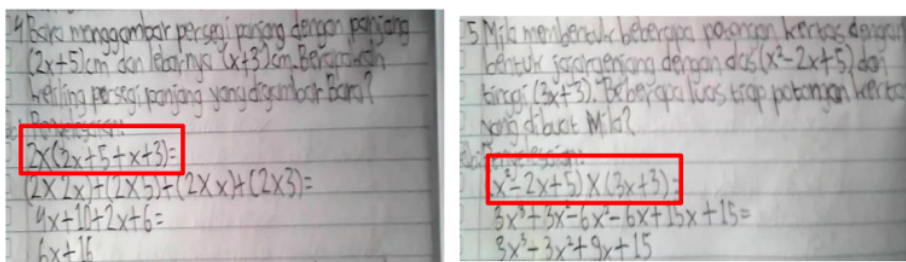 4 Bara menggambar persegi panjang dengan panjang
(2x+5)cm dan lebarnya (x+3)cm. Berapakah
keliling persegi panjang yang digambar Bara?
Penyelesaian:
2x(2x+5+x+3)=
(2x2x)+(2x5)+(2xx)+(2x3)=
4x+10+2x+6=
6x+16
5 Mila membentuk beberapa potongan kertas dengan
bentuk jajargenjang dengan alas (x²-2x+5) dan
tinggi (3x+3). Beberapa luas tiap potongan kertas
yang dibuat Mila?
Penyelesaian:
(x²-2x+5)x(3x+3)=
3x³+3x²-6x²-6x+15x+15=
3x³-3x²+9x+15